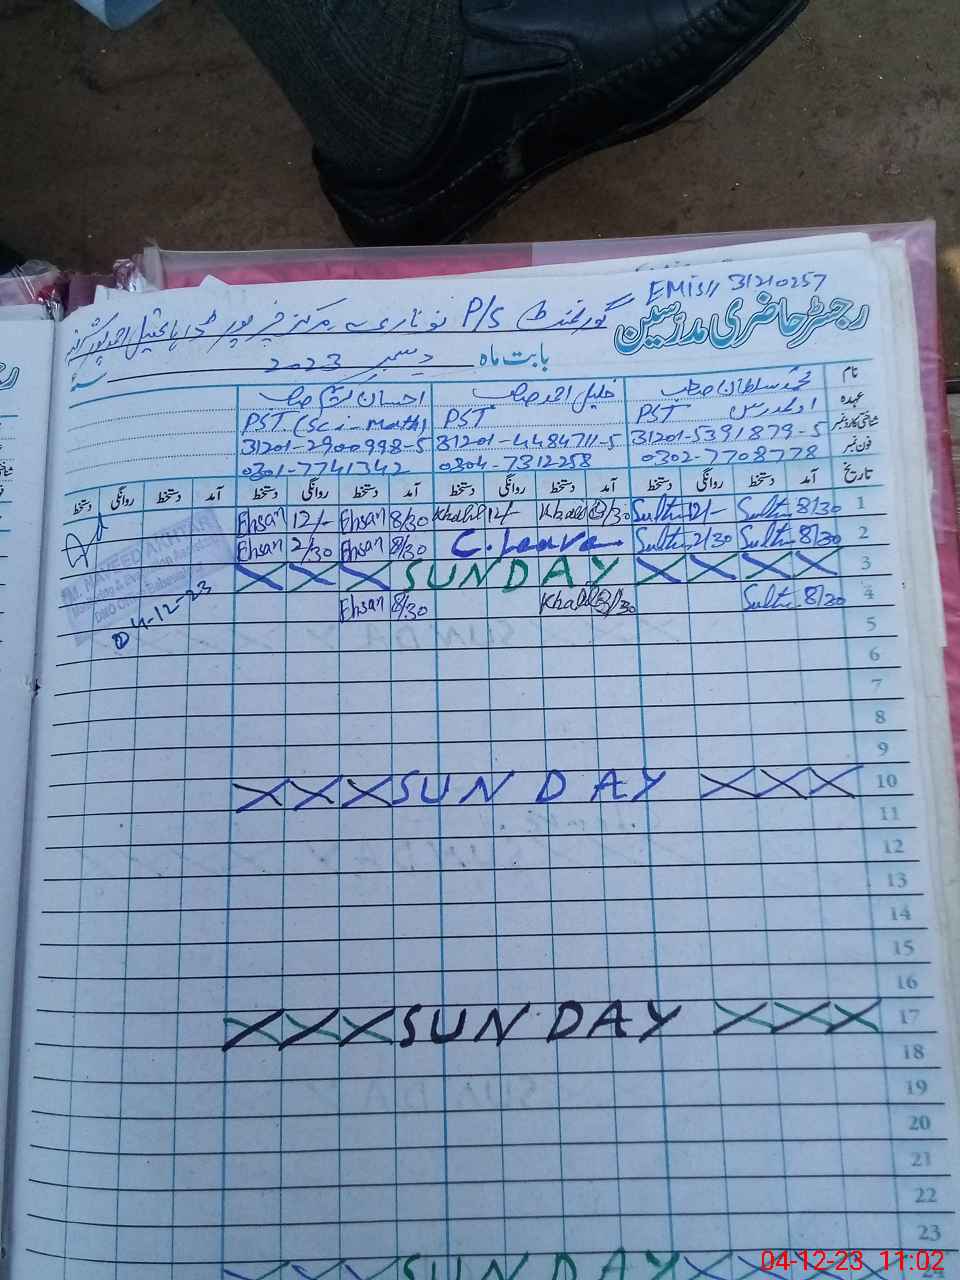 EMIS// 31210257
رجسٹر حاضری مدرسین
گورنمنٹ P/S
بابت ماہ دسمبر 2023
نام محمد سلطان صاحب خلیل احمد صاحب احسان
عہدہ PST PST PST (Sci-Math)
شناختی کارڈ نمبر 31201-5391879-5 31201-4484711-5 31201-2900998-5
فون نمبر 0302-7708778 0304-7312258 0301-7741342
تاریخ آمد دستخط روانگی دستخط آمد دستخط روانگی دستخط آمد دستخط روانگی دستخط آمد دستخط روانگی دستخط
1 8/30 Sultn 12/- Sultn 8/30 Khalil 12/- Khalil 8/30 Ehsan 12/- Ehsan
2 8/30 Sultn 2/30 Sultn C.Leave 8/30 Ehsan 2/30 Ehsan
3 SUNDAY
4 8/30 Sultn 8/30 Khalil 8/30 Ehsan
04-12-23
5
6
7
8
9
10 SUNDAY
11
12
13
14
15
16
17 SUNDAY
18
19
20
21
22
23
24 SUNDAY
04-12-23 11:02